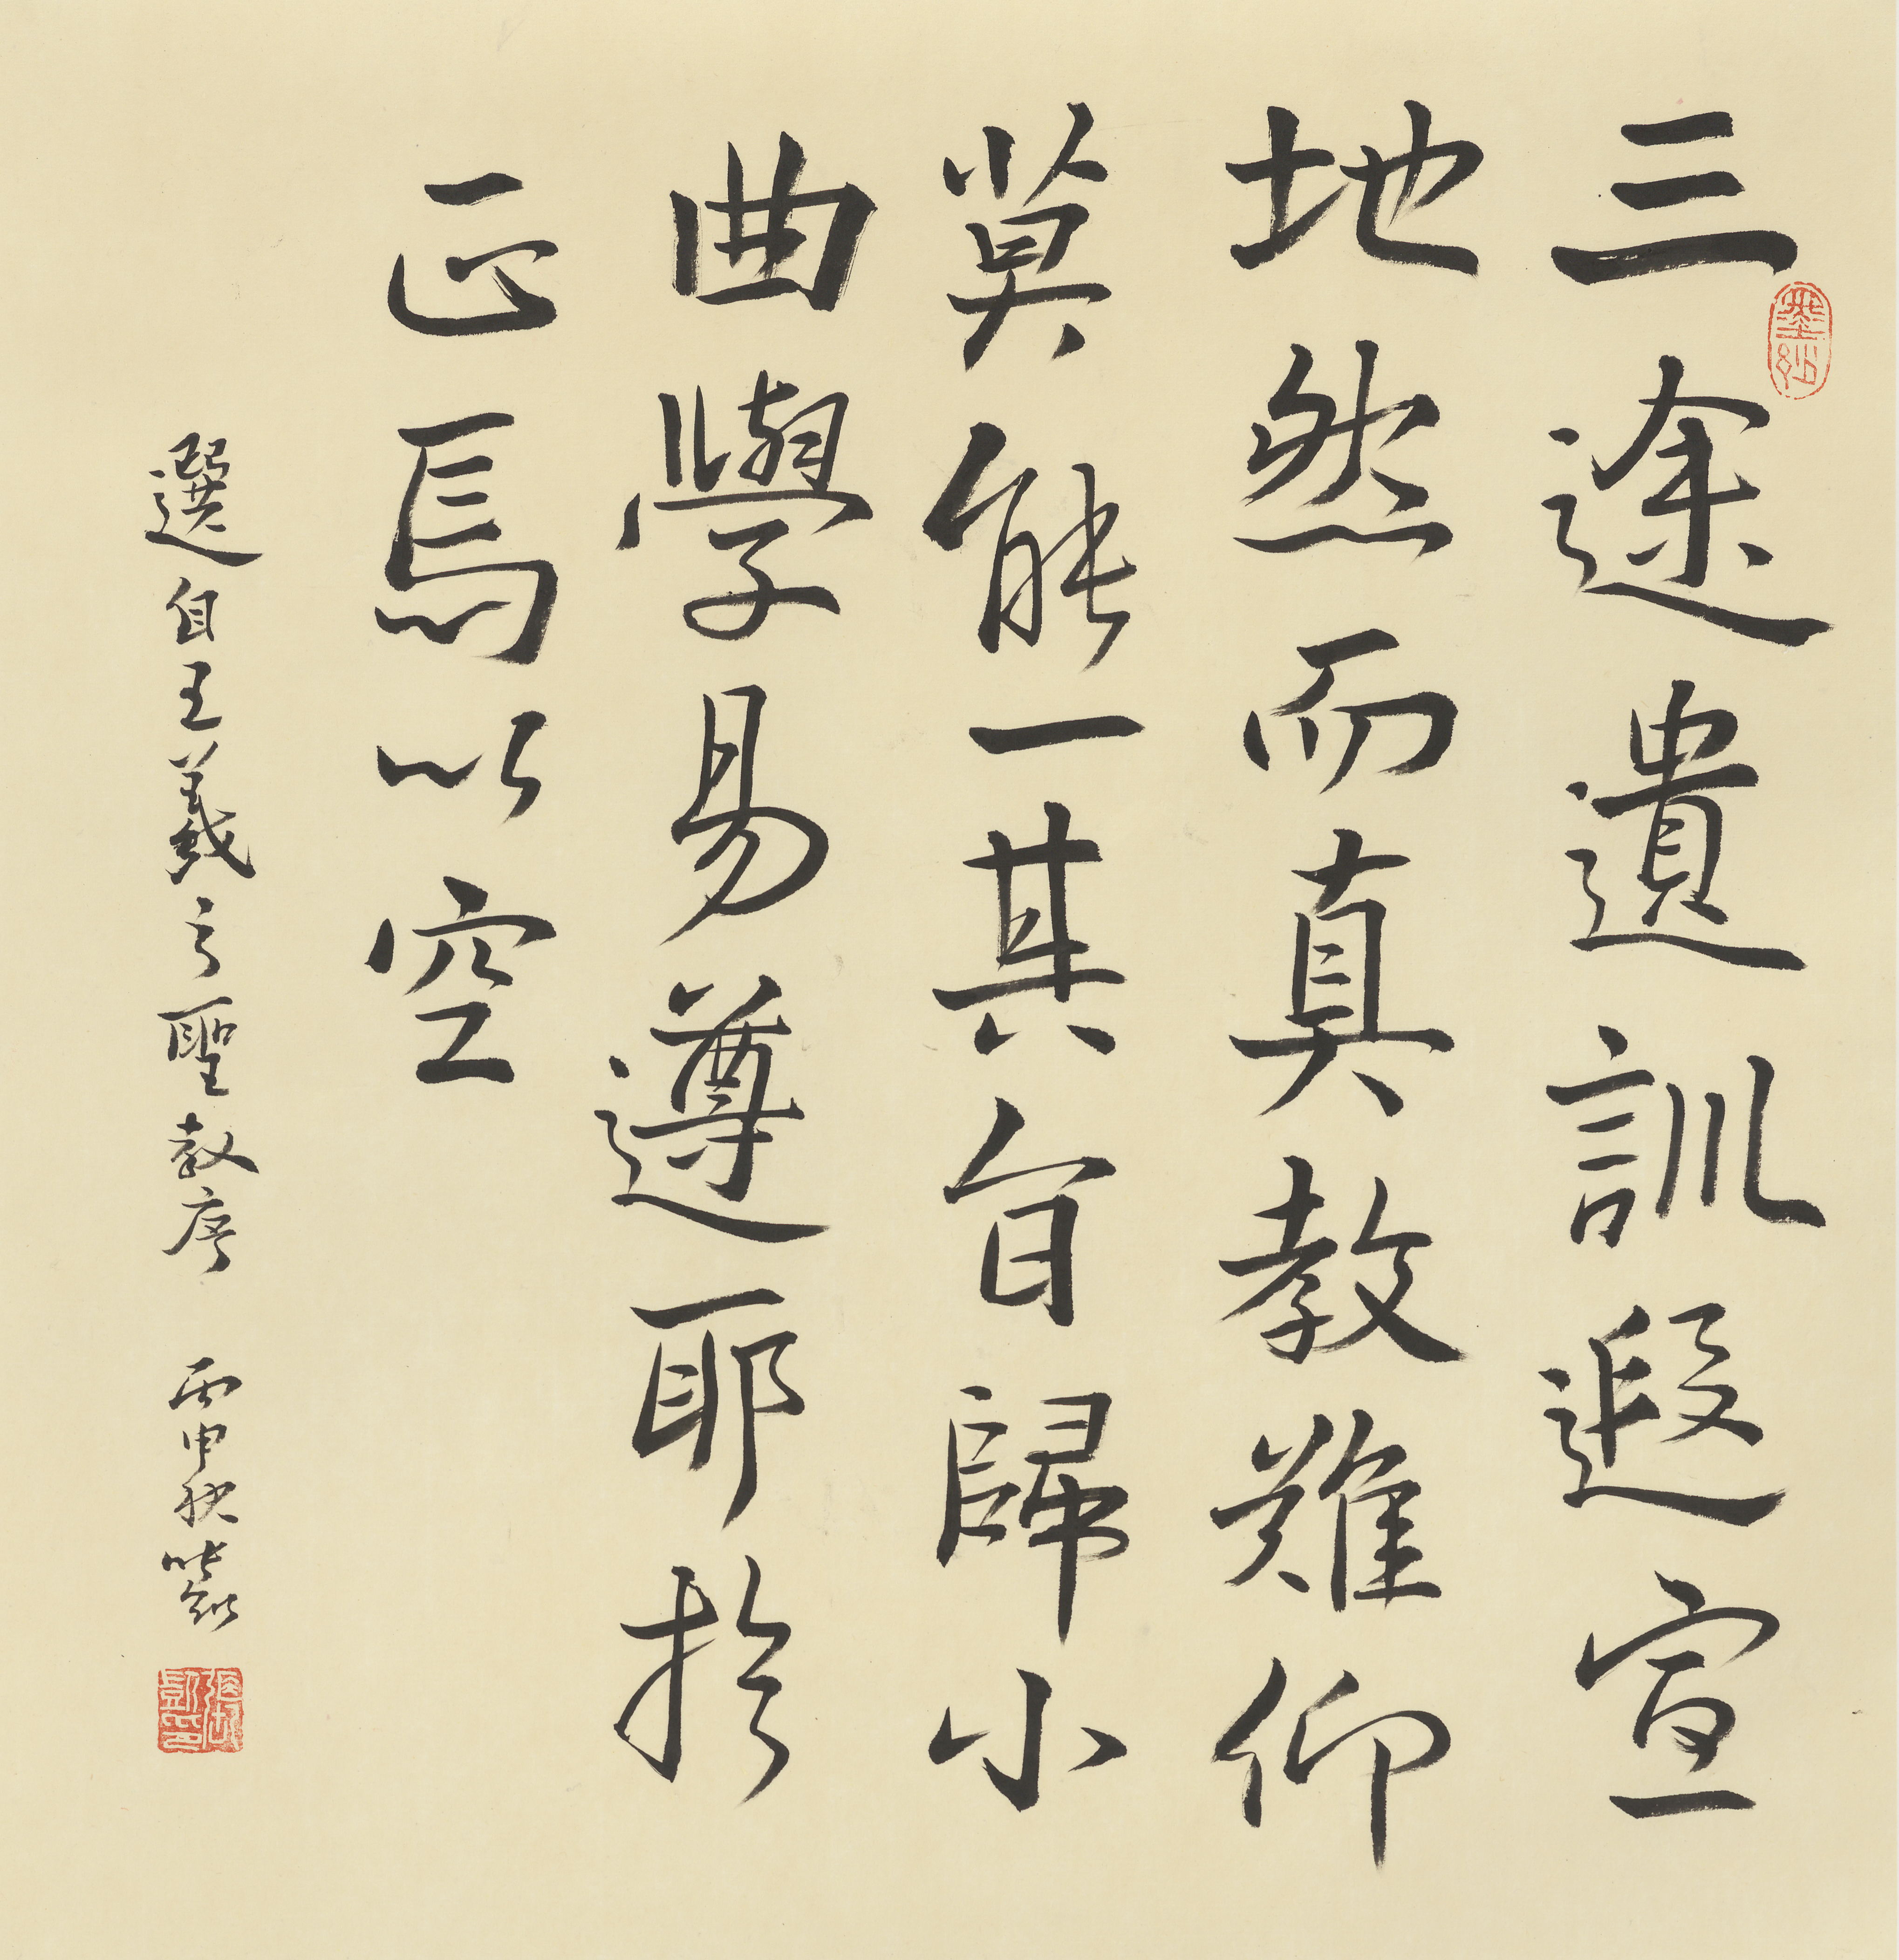 三途遺訓遐宣
地然而真教難仰
莫能一其旨歸小
曲學易遵耶於
正焉以空
選自王羲之聖教序 丙申秋
墨妙